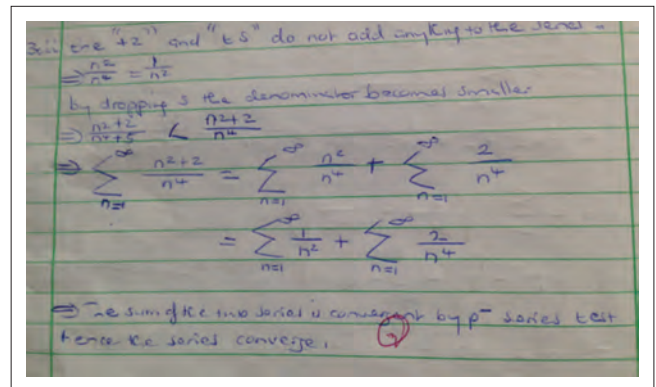 3.iii the "+2" and "+5" do not add anything to the series.
⇒ n²/n⁴ = 1/n²
by dropping 5 the denominator becomes smaller
⇒ n²+2/n⁴+5 < n²+2/n⁴
⇒ ∞∑n=1 n²+2/n⁴ = ∞∑n=1 n²/n⁴ + ∞∑n=1 2/n⁴
= ∞∑n=1 1/n² + ∞∑n=1 2/n⁴
⇒ The sum of the two series is convergent by p- series test
hence the series converge.